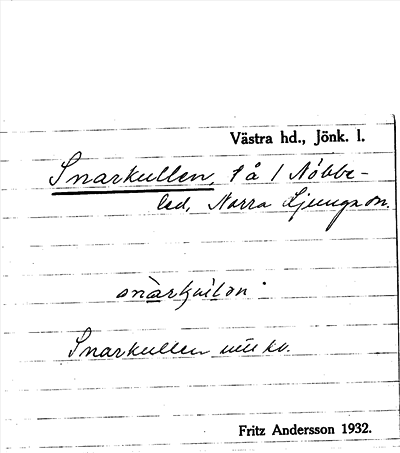 Västra hd., Jönk. l.
Snarkullen, på 1 Nöbbe-
led, Norra Ljunga sn.
Snarkullen
Fritz Andersson 1932.